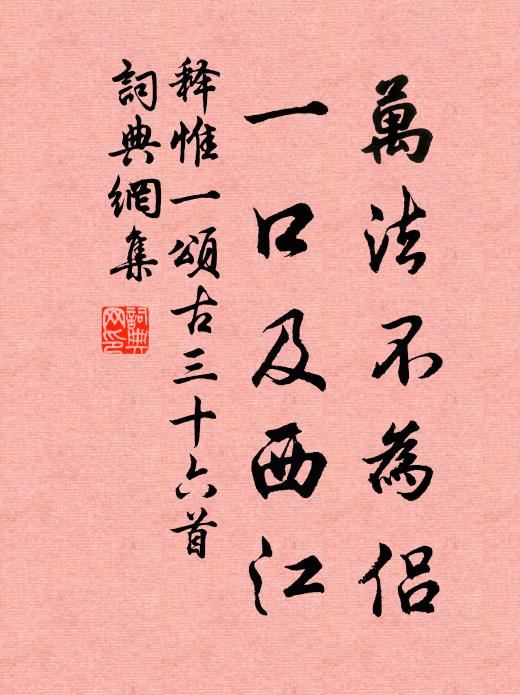 萬法不為侶
一口及西江
释惟一頌古三十六首
詞典網集
詞典网印